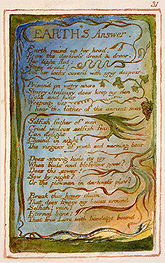 31
EARTH'S Answer.
Earth raisd up her head,
From the darkness dread & drear.
Her light fled:
And her locks cover'd with grey despair.
Prison'd on watry shore
Starry Jealousy does keep my den
Cold and hoar
Weeping o'er
I hear the father of the ancient men
Selfish father of men
Cruel jealous selfish fear
Can delight
Chain'd in night
The virgins of youth and morning bear.
Does spring hide its joy
When buds and blossoms grow?
Does the sower?
Sow by night?
Or the plowman in darkness plow?
Break this heavy chain,
That does freeze my bones around
Selfish! vain,
Eternal bane!
That free Love with bondage bound.